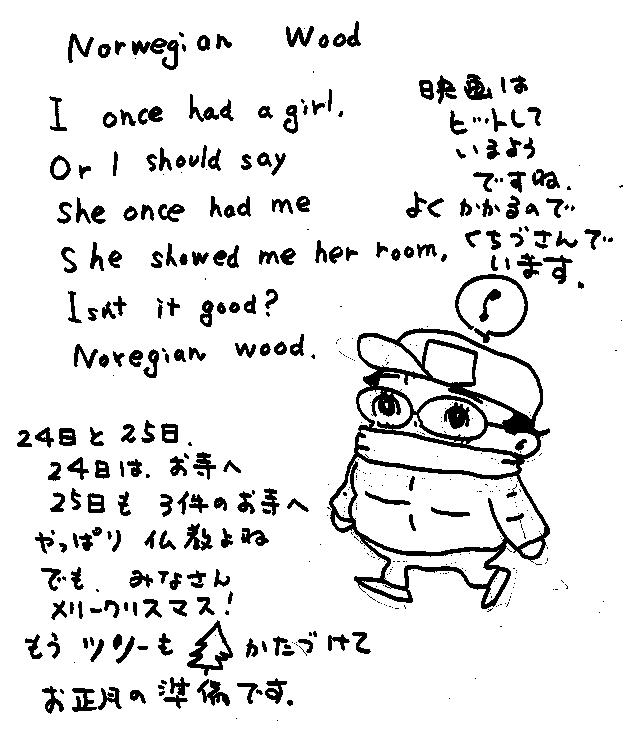 Norwegian Wood
I once had a girl,
Or I should say
She once had me
She showed me her room,
Isn't it good?
Noregian wood.
映画は
ヒットして
いまよう
ですね.
よくかかるので
くちづさんで
います.
24日と25日.
24日は.お寺へ
25日も3件のお寺へ
やっぱり仏教よね
でも.みなさん
メリークリスマス!
もうツリーもかたづけて
お正月の準備です.